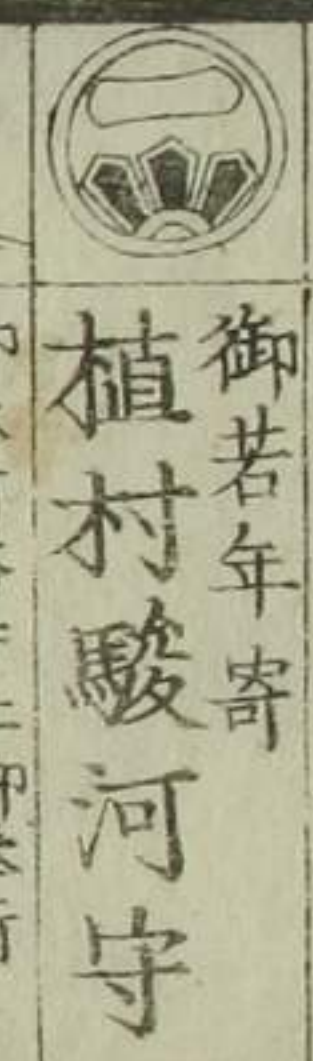 御若年寄
植村駿河守